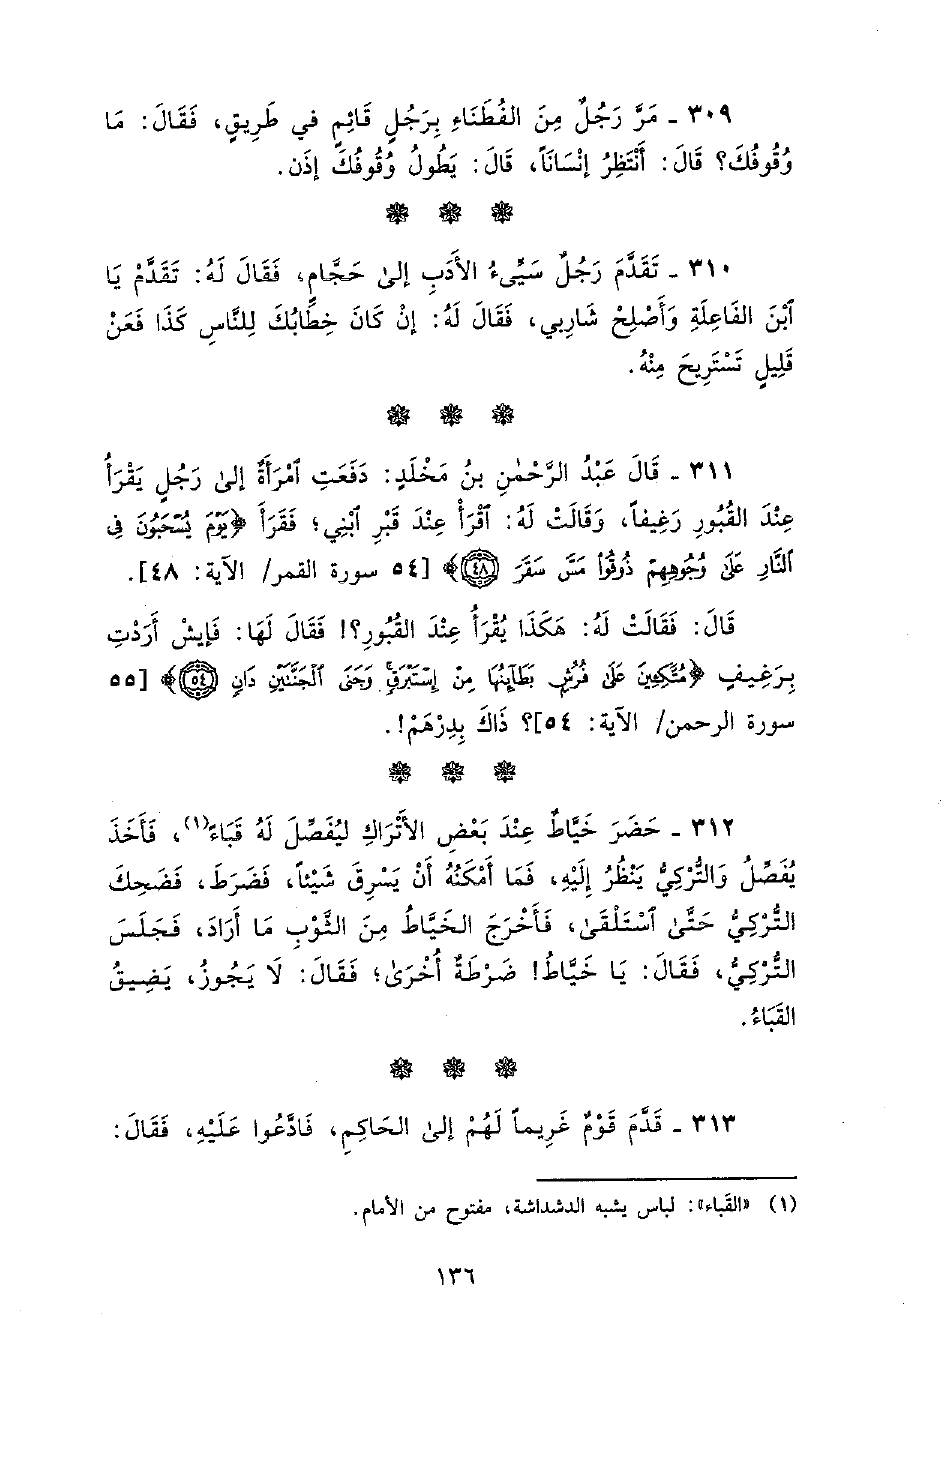 ٣٠٩ ـ مَرَّ رَجُلٌ مِنَ الفُطَنَاءِ بِرَجُلٍ قَائِمٍ في طَرِيقٍ، فَقَالَ: مَا
وُقُوفُكَ؟ قَالَ: أَنْتَظِرُ إنْسَانَاً، قَالَ: يَطُولُ وُقُوفُكَ إذَن.
٣١٠ ـ تَقَدَّمَ رَجُلٌ سَيِّىءُ الأَدَبِ إلىٰ حَجَّامٍ، فَقَالَ لَهُ: تَقَدَّمْ يَا
ٱبْنَ الفَاعِلَةِ وَأَصْلِحْ شَارِبي، فَقَالَ لَهُ: إنْ كَانَ خِطَابُكَ لِلنَّاسِ كَذَا فَعَنْ
قَلِيلٍ تَسْتَرِيحَ مِنْهُ.
٣١١ ـ قَالَ عَبْدُ الرَّحْمٰنِ بنُ مَخْلَدٍ: دَفَعَتِ ٱمْرَأَةٌ إلىٰ رَجُلٍ يَقْرَأُ
عِنْدَ القُبُورِ رَغِيفاً، وَقَالَتْ لَهُ: ٱقْرَأْ عِنْدَ قَبْرِ ٱبْنِي؛ فَقَرَأَ ﴿يَوْمَ يُسْحَبُونَ فِى
ٱلنَّارِ عَلَىٰ وُجُوهِهِمْ ذُوقُوا۟ مَسَّ سَقَرَ ﴿٤٨﴾﴾ [٥٤ سورة القمر/ الآية: ٤٨].
قَالَ: فَقَالَتْ لَهُ: هَكَذَا يُقْرَأُ عِنْدَ القُبُورِ؟! فَقَالَ لَهَا: فَإيشْ أَرَدْتِ
بِرَغِيفٍ ﴿مُتَّكِـِٔينَ عَلَىٰ فُرُشٍۭ بَطَآئِنُهَا مِنْ إِسْتَبْرَقٍ ۚ وَجَنَى ٱلْجَنَّتَيْنِ دَانٍ ﴿٥٤﴾﴾ [٥٥
سورة الرحمن/ الآية: ٥٤]؟ ذَاكَ بِدِرْهَمْ!.
٣١٢ ـ حَضَرَ خَيَّاطٌ عِنْدَ بَعْضِ الأَتْرَاكِ لِيُفَصِّلَ لَهُ قَبَاءً(١)، فَأَخَذَ
يُفَصِّلُ وَالتُّرْكِيُّ يَنْظُرُ إلَيْهِ، فَمَا أَمْكَنَهُ أَنْ يَسْرِقَ شَيْئاً، فَضَرَطَ، فَضَحِكَ
التُّرْكِيُّ حَتَّىٰ ٱسْتَلْقَىٰ، فَأَخْرَجَ الخَيَّاطُ مِنَ الثَّوْبِ مَا أَرَادَ، فَجَلَسَ
التُّرْكِيُّ، فَقَالَ: يَا خَيَّاطُ! ضَرْطَةٌ أُخْرَىٰ؛ فَقَالَ: لَا يَجُوزُ، يَضِيقُ
القَبَاءُ.
٣١٣ ـ قَدَّمَ قَوْمٌ غَرِيماً لَهُمْ إلىٰ الحَاكِمِ، فَادَّعُوا عَلَيْهِ، فَقَالَ:
(١) «القَباء»: لباس يشبه الدشداشة، مفتوح من الأمام.
١٣٦